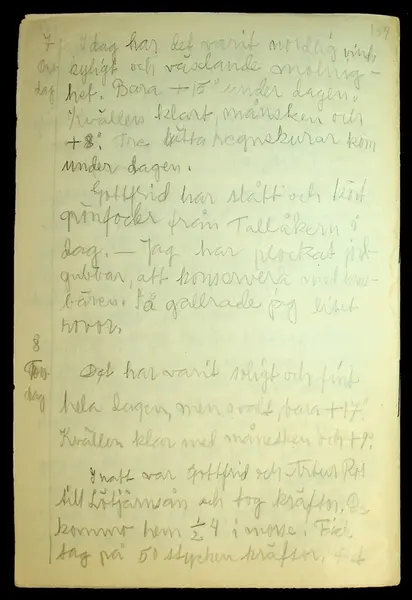 159
7 Idag har det varit nordlig vind,
Ons kyligt och växlande molnig-
dag het. Bara +15° under dagen.
Kvällen klart, månsken och
+8° Tre lätta regnskurar kom
under dagen.
Gottfrid har slått och kört
grönfoder från Tallåkern i
dag. — Jag har plockat jord-
gubbar, att konservera med
bären. Så gallrade jag litet
rovor.
8 Det har varit soligt och fint
Tors-
dag hela dagen, men svalt, bara +17°
Kvällen klar med månsken och +9°
I natt var Gottfrid och Artur
till Lötjärnsån och tog kräftor. De
kommo hem ½ 4 i morse. Fick
tag på 50 stycken kräftor.